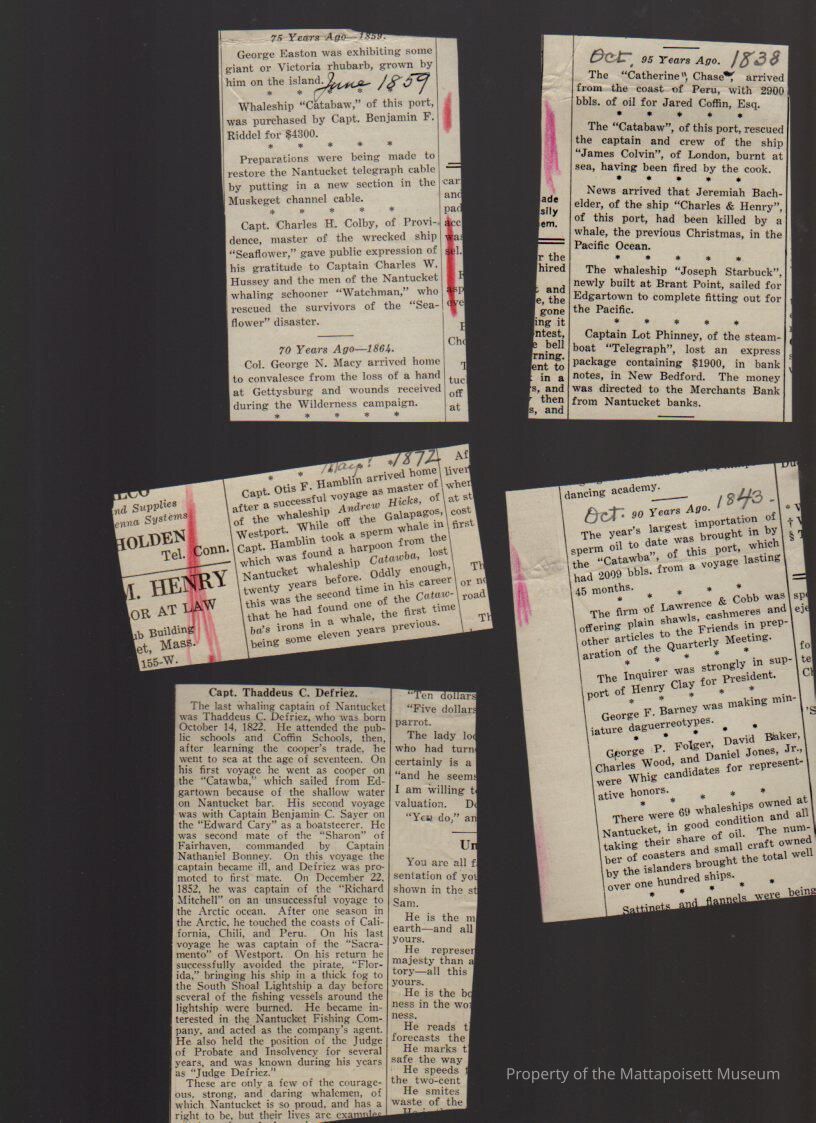 75 Years Ago—1859.
George Easton was exhibiting some
giant or Victoria rhubarb, grown by
him on the island. June 1859
* * * * *
Whaleship "Catabaw," of this port,
was purchased by Capt. Benjamin F.
Riddel for $4300.
* * * * *
Preparations were being made to
restore the Nantucket telegraph cable
by putting in a new section in the
Muskeget channel cable.
* * * * *
Capt. Charles H. Colby, of Provi-
dence, master of the wrecked ship
"Seaflower," gave public expression of
his gratitude to Captain Charles W.
Hussey and the men of the Nantucket
whaling schooner "Watchman," who
rescued the survivors of the "Sea-
flower" disaster.
70 Years Ago—1864.
Col. George N. Macy arrived home
to convalesce from the loss of a hand
at Gettysburg and wounds received
during the Wilderness campaign.
* * * * *
car
and
pad
acc
was
sel.
asp
eve
Cho
tuc
off
at
Oct. 95 Years Ago. 1838
The "Catherine" Chase", arrived
from the coast of Peru, with 2900
bbls. of oil for Jared Coffin, Esq.
* * * * *
The "Catabaw", of this port, rescued
the captain and crew of the ship
"James Colvin", of London, burnt at
sea, having been fired by the cook.
* * * * *
News arrived that Jeremiah Bach-
elder, of the ship "Charles & Henry",
of this port, had been killed by a
whale, the previous Christmas, in the
Pacific Ocean.
* * * * *
The whaleship "Joseph Starbuck",
newly built at Brant Point, sailed for
Edgartown to complete fitting out for
the Pacific.
* * * * *
Captain Lot Phinney, of the steam-
boat "Telegraph", lost an express
package containing $1900, in bank
notes, in New Bedford. The money
was directed to the Merchants Bank
from Nantucket banks.
ade
sily
em.
r the
hired
and
e, the
gone
ing it
ntest,
e bell
rning.
ent to
in a
s, and
then
s, and
1872
Capt. Otis F. Hamblin arrived home
after a successful voyage as master of
of the whaleship Andrew Hicks, of
Westport. While off the Galapagos,
Capt. Hamblin took a sperm whale in
which was found a harpoon from the
Nantucket whaleship Catawba, lost
twenty years before. Oddly enough,
this was the second time in his career
that he had found one of the Cataw-
ba's irons in a whale, the first time
being some eleven years previous.
nd Supplies
enna Systems
HOLDEN
Tel. Conn.
M. HENRY
OR AT LAW
ub Building
et, Mass.
155-W.
Af
liver
when
at st
cost
first
Th
or no
road
Th
dancing academy.
Oct. 90 Years Ago. 1843-
The year's largest importation of
sperm oil to date was brought in by
the "Catawba", of this port, which
had 2009 bbls. from a voyage lasting
45 months.
* * * * *
The firm of Lawrence & Cobb was
offering plain shawls, cashmeres and
other articles to the Friends in prep-
aration of the Quarterly Meeting.
* * * * *
The Inquirer was strongly in sup-
port of Henry Clay for President.
* * * * *
George F. Barney was making min-
iature daguerreotypes.
* * * * *
George P. Folger, David Baker,
Charles Wood, and Daniel Jones, Jr.,
were Whig candidates for represent-
ative honors.
* * * * *
There were 69 whaleships owned at
Nantucket, in good condition and all
taking their share of oil. The num-
ber of coasters and small craft owned
by the islanders brought the total well
over one hundred ships.
* * * * *
Sattinets and flannels were being
Capt. Thaddeus C. Defriez.
The last whaling captain of Nantucket
was Thaddeus C. Defriez, who was born
October 14, 1822. He attended the pub-
lic schools and Coffin Schools, then,
after learning the cooper's trade, he
went to sea at the age of seventeen. On
his first voyage he went as cooper on
the "Catawba," which sailed from Ed-
gartown because of the shallow water
on Nantucket bar. His second voyage
was with Captain Benjamin C. Sayer on
the "Edward Cary" as a boatsteerer. He
was second mate of the "Sharon" of
Fairhaven, commanded by Captain
Nathaniel Bonney. On this voyage the
captain became ill, and Defriez was pro-
moted to first mate. On December 22,
1852, he was captain of the "Richard
Mitchell" on an unsuccessful voyage to
the Arctic ocean. After one season in
the Arctic, he touched the coasts of Cali-
fornia, Chili, and Peru. On his last
voyage he was captain of the "Sacra-
mento" of Westport. On his return he
successfully avoided the pirate, "Flor-
ida," bringing his ship in a thick fog to
the South Shoal Lightship a day before
several of the fishing vessels around the
lightship were burned. He became in-
terested in the Nantucket Fishing Com-
pany, and acted as the company's agent.
He also held the position of the Judge
of Probate and Insolvency for several
years, and was known during his years
as "Judge Defriez."
These are only a few of the courage-
ous, strong, and daring whalemen, of
which Nantucket is so proud, and has a
right to be, but their lives are examples
"Ten dollars
"Five dollars
parrot.
The lady lo
who had turn
certainly is a
"and he seems
I am willing t
valuation. D
"You do," an
Un
You are all f
sentation of yo
shown in the st
Sam.
He is the m
earth—and all
yours.
He represen
majesty than a
tory—all this
yours.
He is the bo
ness in the wo
ness.
He reads t
forecasts the
He marks t
safe the way
He speeds
the two-cent
He smites
waste of the
Property of the Mattapoisett Museum